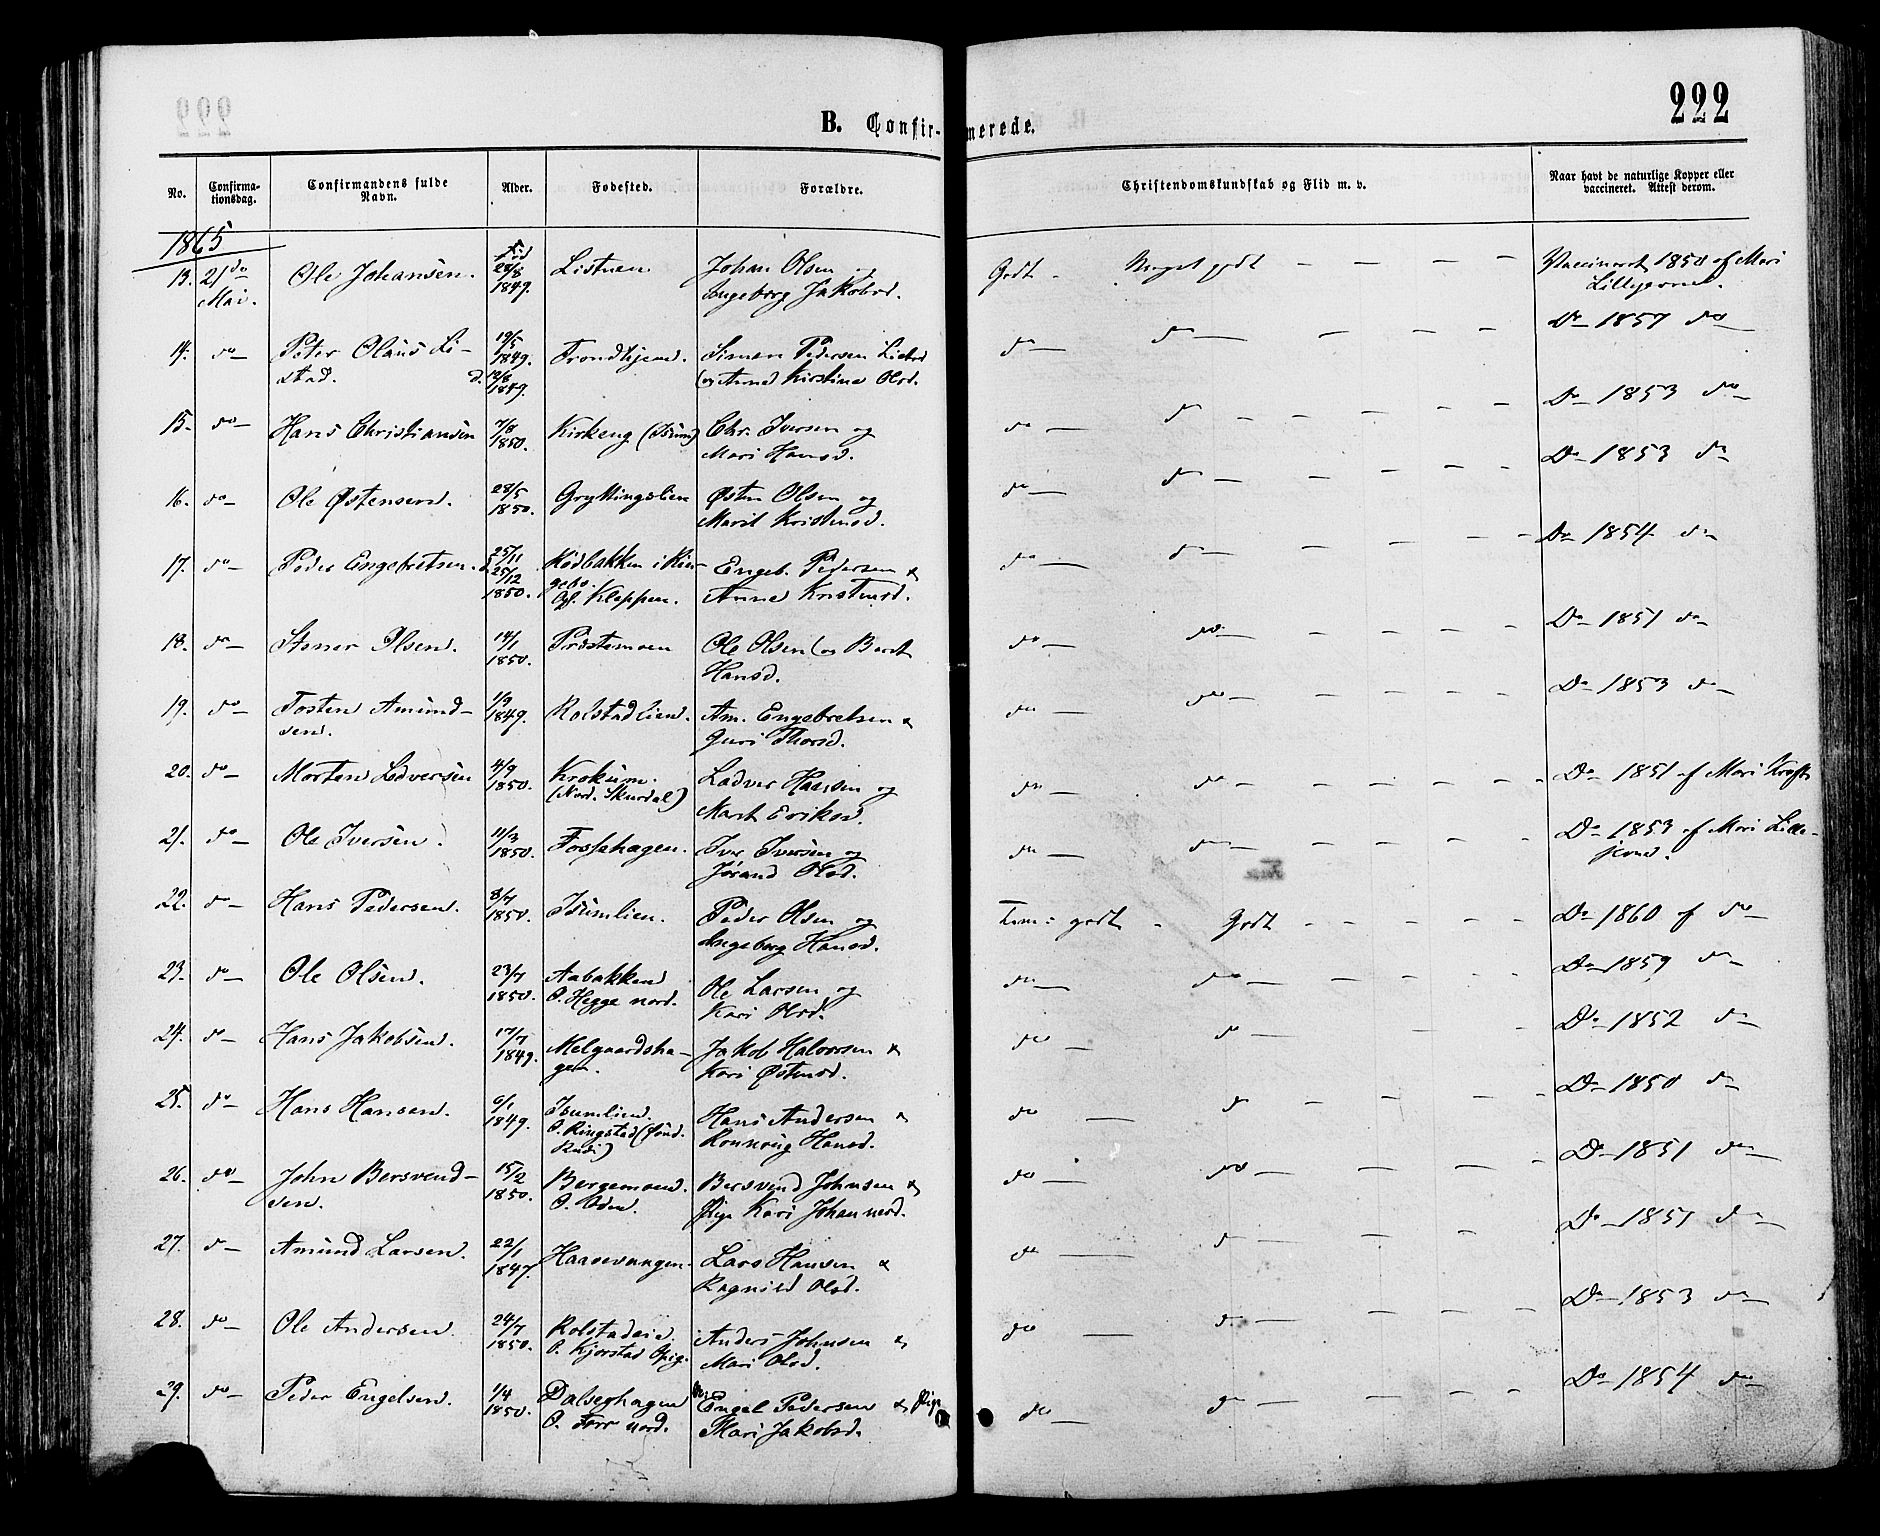 222
B. Confir-merede.
No. Confirma-tionsdag. Confirmandens fulde Navn. Alder. Fødested. Forældre. Christendomskundskab og Flid m. v. Naar havt de naturlige Kopper eller vaccineret. Attest derom.
1865
13. 21de Mai. Ole Johansen. fød 28/8 1849. Listuen Johan Olsen og Ingeborg Jakobsd. Godt - Meget godt — — — — Vaccineret 1850 af Mari Lillejevne.
14. do — Peter Olaus Listad. 19/5 1849. d. 12/8 1849. Trondhjem. Simen Pedersen og Anne Kirstine Olsd. do — do — — — — — Do 1857 do —
15. do — Hans Christiansen 7/8 1850. Kirkeng (Isum) Chr. Iversen og Mari Hansd. do — do — — — — — Do 1853 do —
16. do — Ole Østensen. 28/5 1850. Gryttingslien Østen Olsen og Marit Kristensd. do — do — — — — Do 1853 do
17. do — Peder Engebretsen. 25/11 d. 25/12 1850. Rødbakken i Ringebo. Opf. Kleppen. Engeb. Pedersen & Anne Kristensd. do — do — — — — — Do 1854 do —
18. do — Stener Olsen. 14/1 1850. Præstemoen Ole Olsen og Berit Hansd. do — do — — — — — Do 1851 do —
19. do — Tosten Amundsen. 1/9 1849. Kolstadlien. Am. Engebretsen & Guri Thorsd. do — do — — — — — Do 1853 do —
20. do — Morten Ledversen 4/9 1850. Krokum. (Nord. Skurdal) Ledver Hansen og Marit Eriksd. do — do — — — — — Do 1851 af Mari Krøft
21. do — Ole Iversen. 11/3 1850. Fossehagen. Iver Iversen og Jørand Olsd. do — do — — — — — Do 1853 af Mari Lillejevne.
22. do — Hans Pedersen. 8/7 1850. Isumlien. Peder Olsen og Ingeborg Hansd. Tem: godt - Godt - — — — Do 1860 af do —
23. do — Ole Olsen. 23/7 1850. Aabakken O. Hegge nord. Ole Larsen og Kari Olsd. do — do — — — — — Do 1859 do —
24. do — Hans Jakobsen. 17/7 1849. Melgaardshagen. Jakob Halvorsen & Kari Østensd. do — do — — — Do 1852 do —
25. do — Hans Hansen. 6/1 1849. Isumlien. O. Ringstad (Sønd. Rudi) Hans Andersen & Rønnaug Hansd. do — do — — — — Do 1850 do —
26. do — John Bersvendsen. 15/2 1850. Bergemoen. O. Oden. Bersvend Johnsen & Pige Kari Johannesd. do — do — — — — Do 1851 do —
27. do — Amund Larsen. 22/1 1847. Haavevangen. Lars Hansen & Ragnild Olsd. do — do — — — — Do 1857 do —
28. do — Ole Andersen. 24/7 1850. Kolstadeie. O. Kjorstad Opig. Anders Johnsen & Mari Olsd. do — do — — — — Do 1853 do —
29. do — Peder Engelsen. 1/4 1850. Dalseghagen O. Forr nord. Engel Pedersen & Pige Mari Jakobsd. do — do — — — — Do 1854 do —